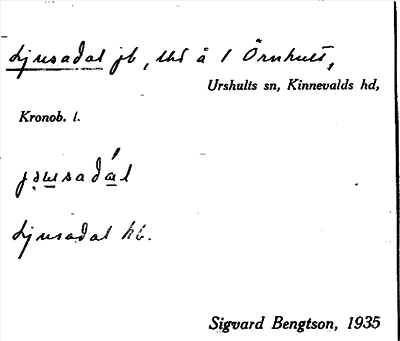 Ljusadal jb, uts å 1 Örnhult,
Urshults sn, Kinnevalds hd,
Kronob. l.
Ljusadal hb.
Sigvard Bengtson, 1935